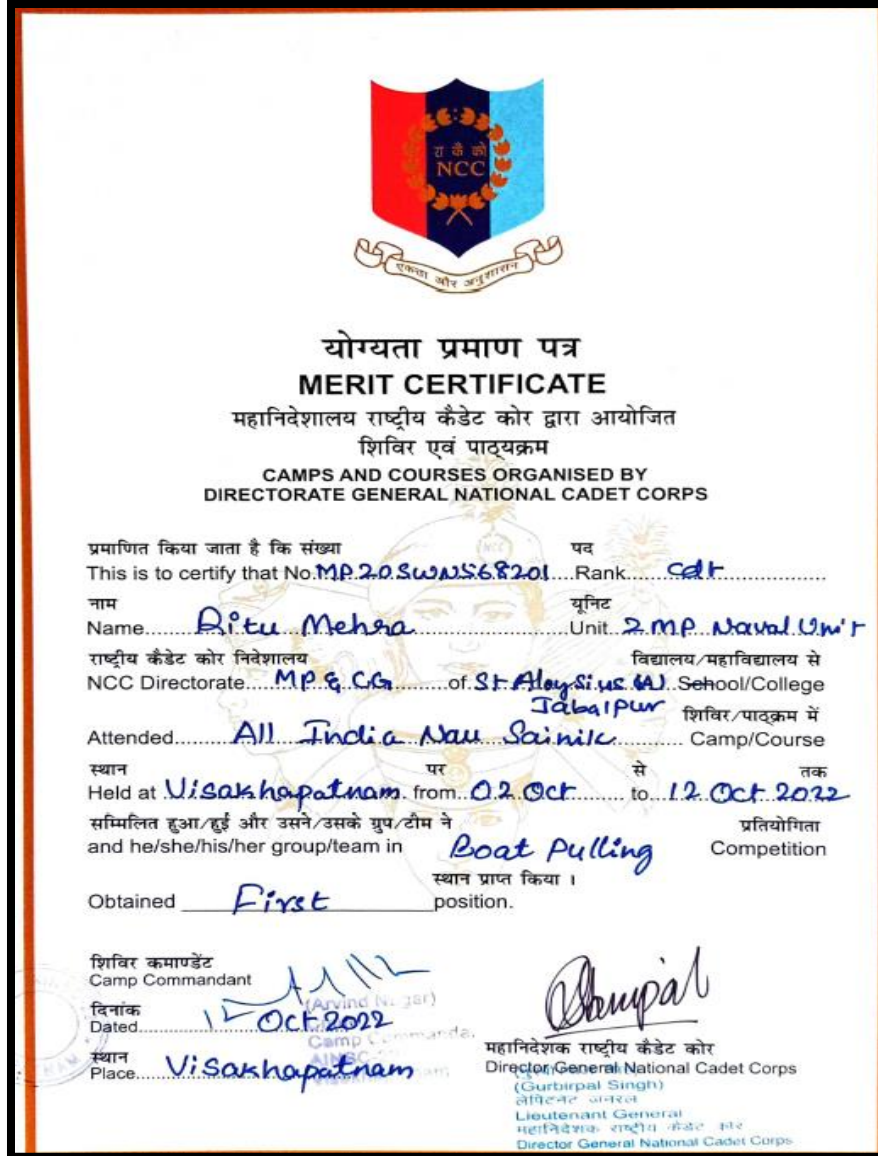 रा कै को
NCC
एकता और अनुशासन
योग्यता प्रमाण पत्र
MERIT CERTIFICATE
महानिदेशालय राष्ट्रीय कैडेट कोर द्वारा आयोजित
शिविर एवं पाठ्यक्रम
CAMPS AND COURSES ORGANISED BY
DIRECTORATE GENERAL NATIONAL CADET CORPS
प्रमाणित किया जाता है कि संख्या पद
This is to certify that No. MP20SWNS68201 Rank Cdt
नाम यूनिट
Name Ritu Mehra Unit 2 MP Naval Unit
राष्ट्रीय कैडेट कोर निदेशालय विद्यालय/महाविद्यालय से
NCC Directorate MP & CG of St Aloysius (A) School/College
Jabalpur शिविर/पाठ्क्रम में
Attended All India Nau Sainik Camp/Course
स्थान पर से तक
Held at Visakhapatnam from 02 Oct to 12 Oct 2022
सम्मिलित हुआ/हुई और उसने/उसके ग्रुप/टीम ने प्रतियोगिता
and he/she/his/her group/team in Boat Pulling Competition
स्थान प्राप्त किया ।
Obtained First position.
शिविर कमाण्डेंट
Camp Commandant
दिनांक (Arvind
Dated 12 Oct 2022
Camp
स्थान
Place Visakhapatnam
महानिदेशक राष्ट्रीय कैडेट कोर
Director General National Cadet Corps
(Gurbirpal Singh)
लेफ्टिनेंट जनरल
Lieutenant General
महानिदेशक राष्ट्रीय कैडेट कोर
Director General National Cadet Corps